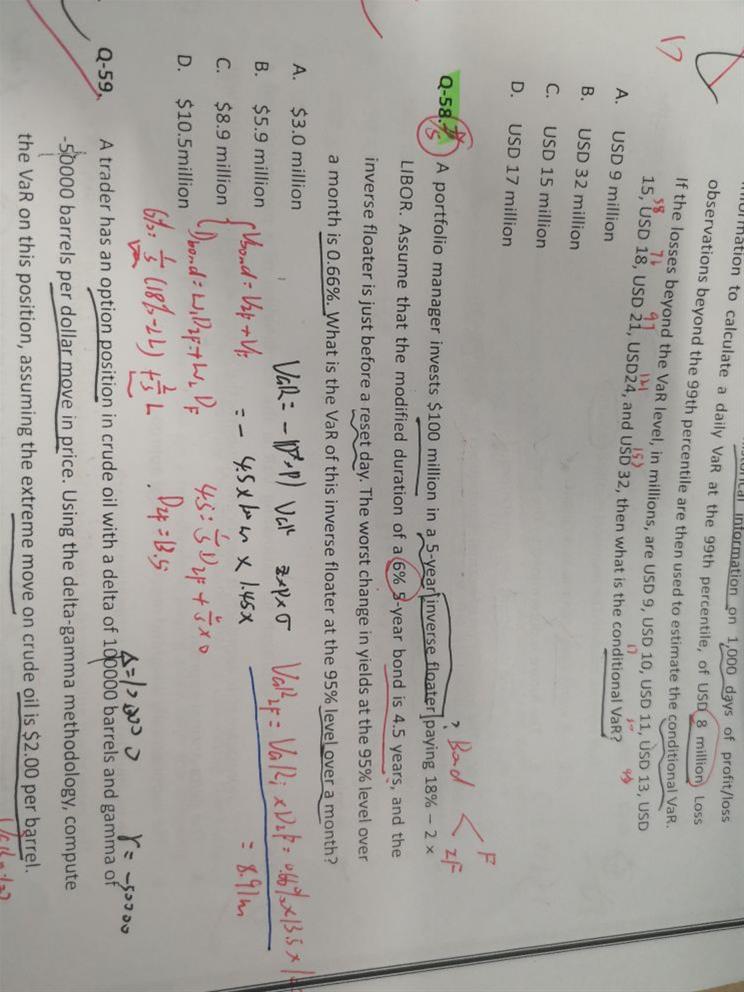 information to calculate a daily VaR at the 99th percentile, of USD 8 million. Loss
observations beyond the 99th percentile are then used to estimate the conditional VaR.
If the losses beyond the VaR level, in millions, are USD 9, USD 10, USD 11, USD 13, USD
15, USD 18, USD 21, USD24, and USD 32, then what is the conditional VaR?
A. USD 9 million
B. USD 32 million
C. USD 15 million
D. USD 17 million
Q-58. A portfolio manager invests $100 million in a 5-year inverse floater paying 18% – 2 ×
LIBOR. Assume that the modified duration of a 6% 5-year bond is 4.5 years, and the
inverse floater is just before a reset day. The worst change in yields at the 95% level over
a month is 0.66%. What is the VaR of this inverse floater at the 95% level over a month?
Bond < F
IF
A. $3.0 million
B. $5.9 million
C. $8.9 million
D. $10.5million
Vbond = VIF + VF
Dbond = W1DIF + W2DF
6% : 1/3 (18% - 2L) + 2/3 L
4.5 = 1/3 DIF + 2/3 × 0
DIF = 13.5
= 8.91m
Q-59. A trader has an option position in crude oil with a delta of 100000 barrels and gamma of
-50000 barrels per dollar move in price. Using the delta-gamma methodology, compute
the VaR on this position, assuming the extreme move on crude oil is $2.00 per barrel.